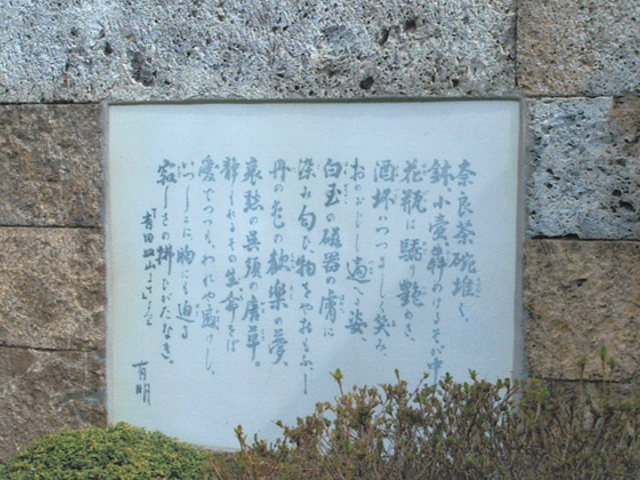 奈良茶碗堆く、
鉢、小壷、犇めけるその中
花瓶は驕り艶めき、
酒坏はつつましく笑み、
おのがじし適へる姿、
白玉の磁器の膚に
染み匂ひ物をやおもふ
丹の色の歓楽の夢、
哀愁の呉須の唐草。
静もれるその生命をば
愛でつつも、われや
いつしかに、胸にも迫る
寂しさの ひがたなき。
有田皿山にて
有明